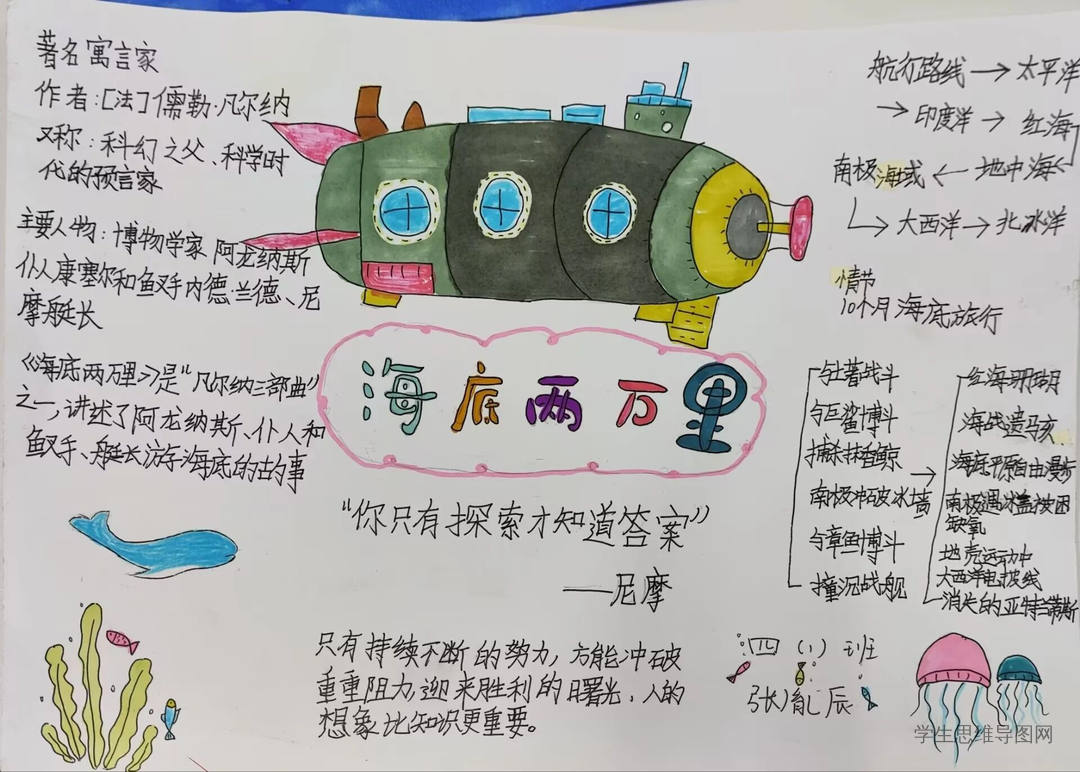 著名寓言家
作者:[法]儒勒·凡尔纳
又称:科幻之父、科学时
代的预言家
主要人物:博物学家阿龙纳斯
仆人康塞尔和鱼叉手内德·兰德、尼
摩艇长
《海底两万里》是“凡尔纳三部曲”
之一,讲述了阿龙纳斯、仆人和
鱼叉手、艇长游海底的故事
海底两万里
“你只有探索才知道答案”
——尼摩
只有持续不断的努力,方能冲破
重重阻力,迎来胜利的曙光,人的
想象比知识更重要。
航行路线→太平洋
→印度洋→红海
南极海域←地中海
→大西洋→北冰洋
情节
10个月海底旅行
与土著战斗
与巨鲨博斗
捕抹香鲸
南极冲破冰墙
与章鱼博斗
撞沉战舰
红海珊瑚
海战遗马亥
海底平原自由漫步
南极遇冰盖被困
缺氧
地壳运动中
大西洋电报线
消失的亚特兰蒂斯
四(1)班
张胤辰
学生思维导图网